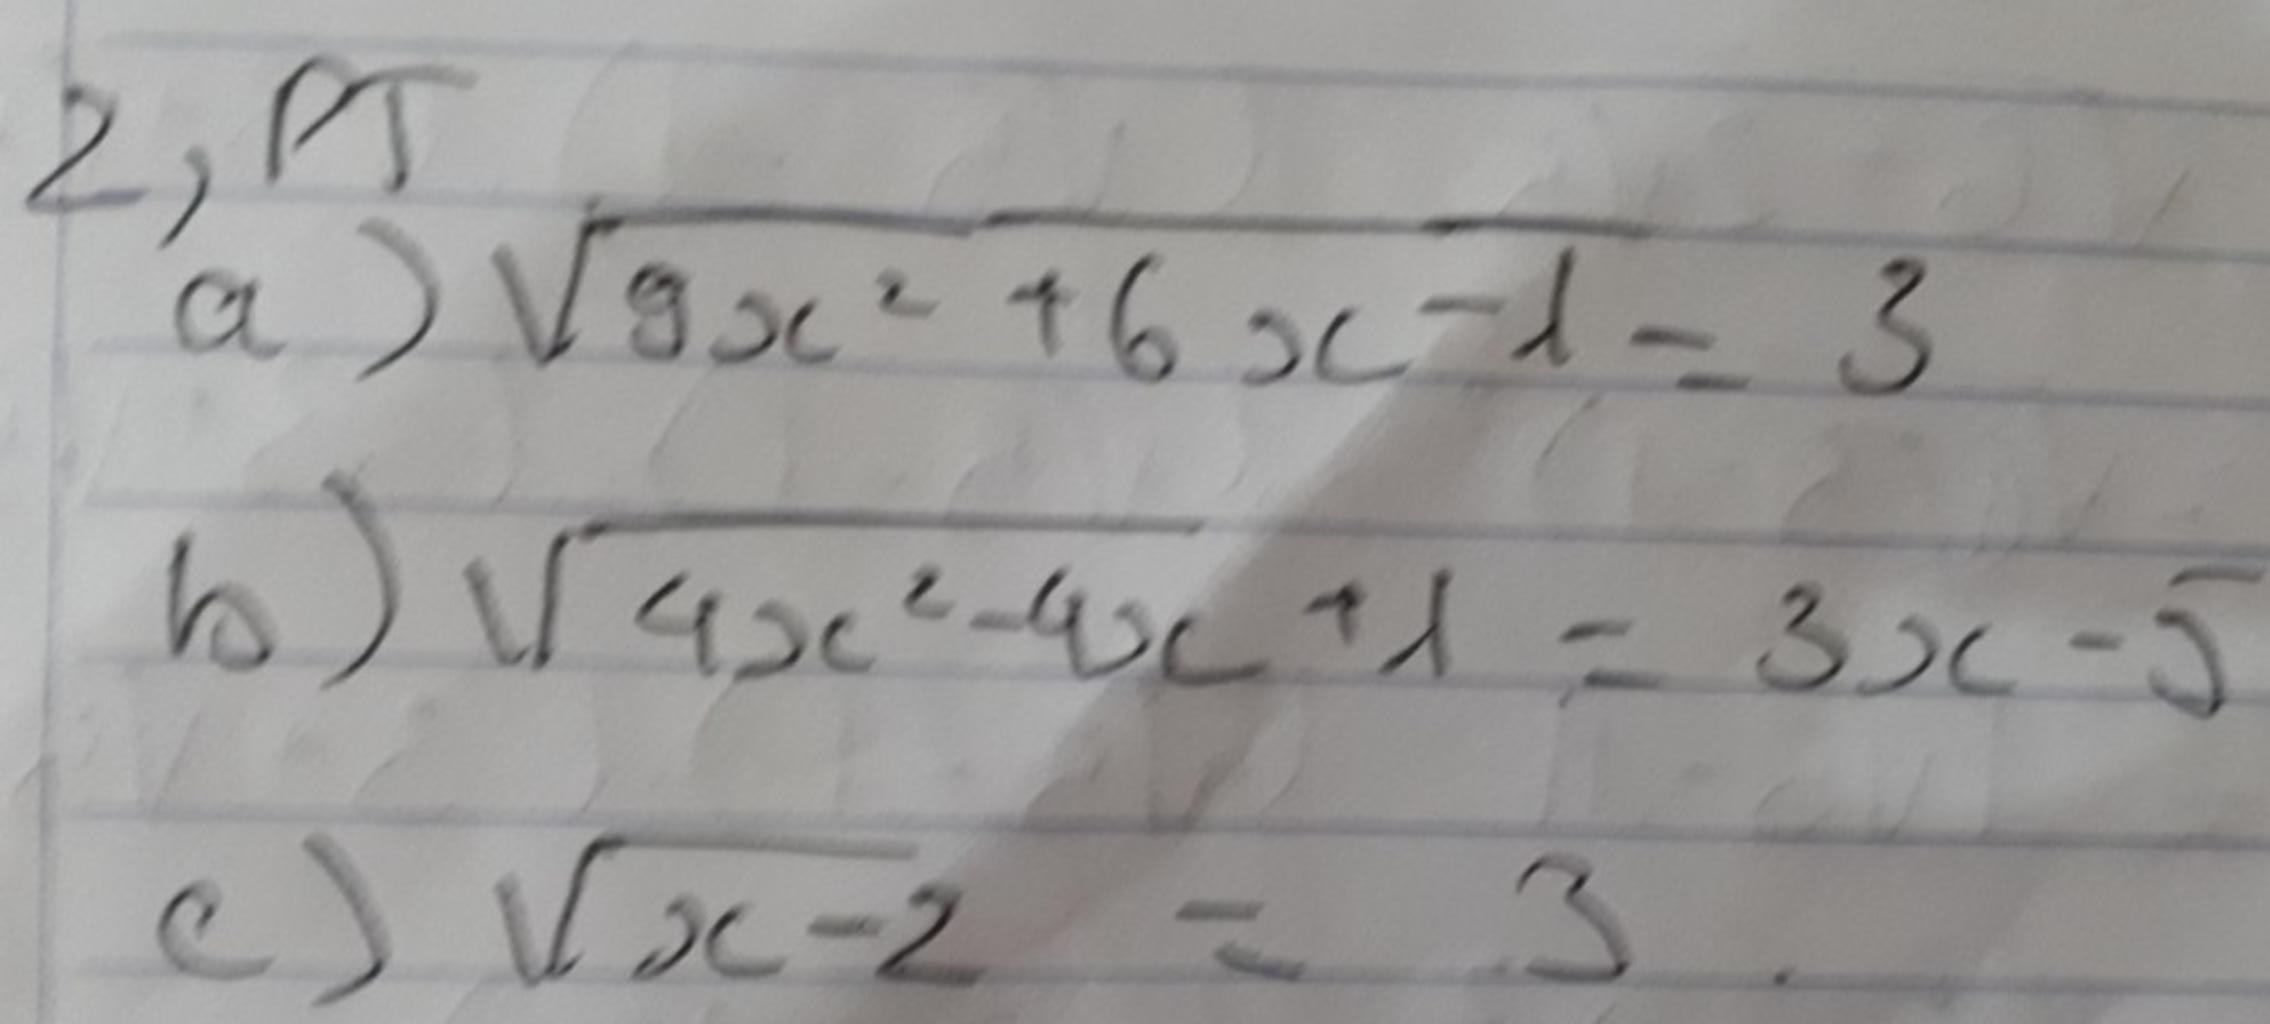 2, PT
a) √9x² + 6x - 1 = 3
b) √4x² - 4x + 1 = 3x - 5
c) √x - 2 = 3.